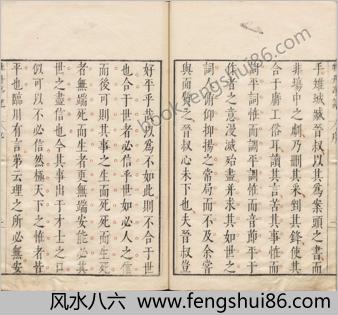 手雉城臧晉叔以其爲案頭之書而
非場中之劇乃刪其采剉其鋒使其
合于庸工俗耳讀其言苦其事恠而
詞平詞恠而調平調恠而音節平于
作者之意漫滅殆盡并求其如世之
詞人俯仰抑揚之常局而不及余嘗
與面質之晉叔心未下也夫晉叔豈
好平乎哉以爲不如此則不合于世
也合于世者必信乎世如必人之信
而後可則其事之生而死死而生死
者無端死而生者更無端安能必其
世之盡信也今其事出于才士之口
似可以不必信然極天下之恠者皆
平也臨川有言第云理之所必無安
风水八六 www.fengshui86.com